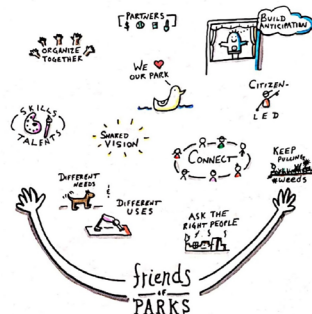 PARTNERS
BUILD
ANTICIPATION
ORGANIZE
TOGETHER
WE ♥
OUR PARK
CITIZEN-
LED
SKILLS
TALENTS
SHARED
VISION
CONNECT
KEEP
PULLING
#WEEDS
DIFFERENT
NEEDS
DIFFERENT
USES
ASK THE
RIGHT PEOPLE
friends
OF
PARKS